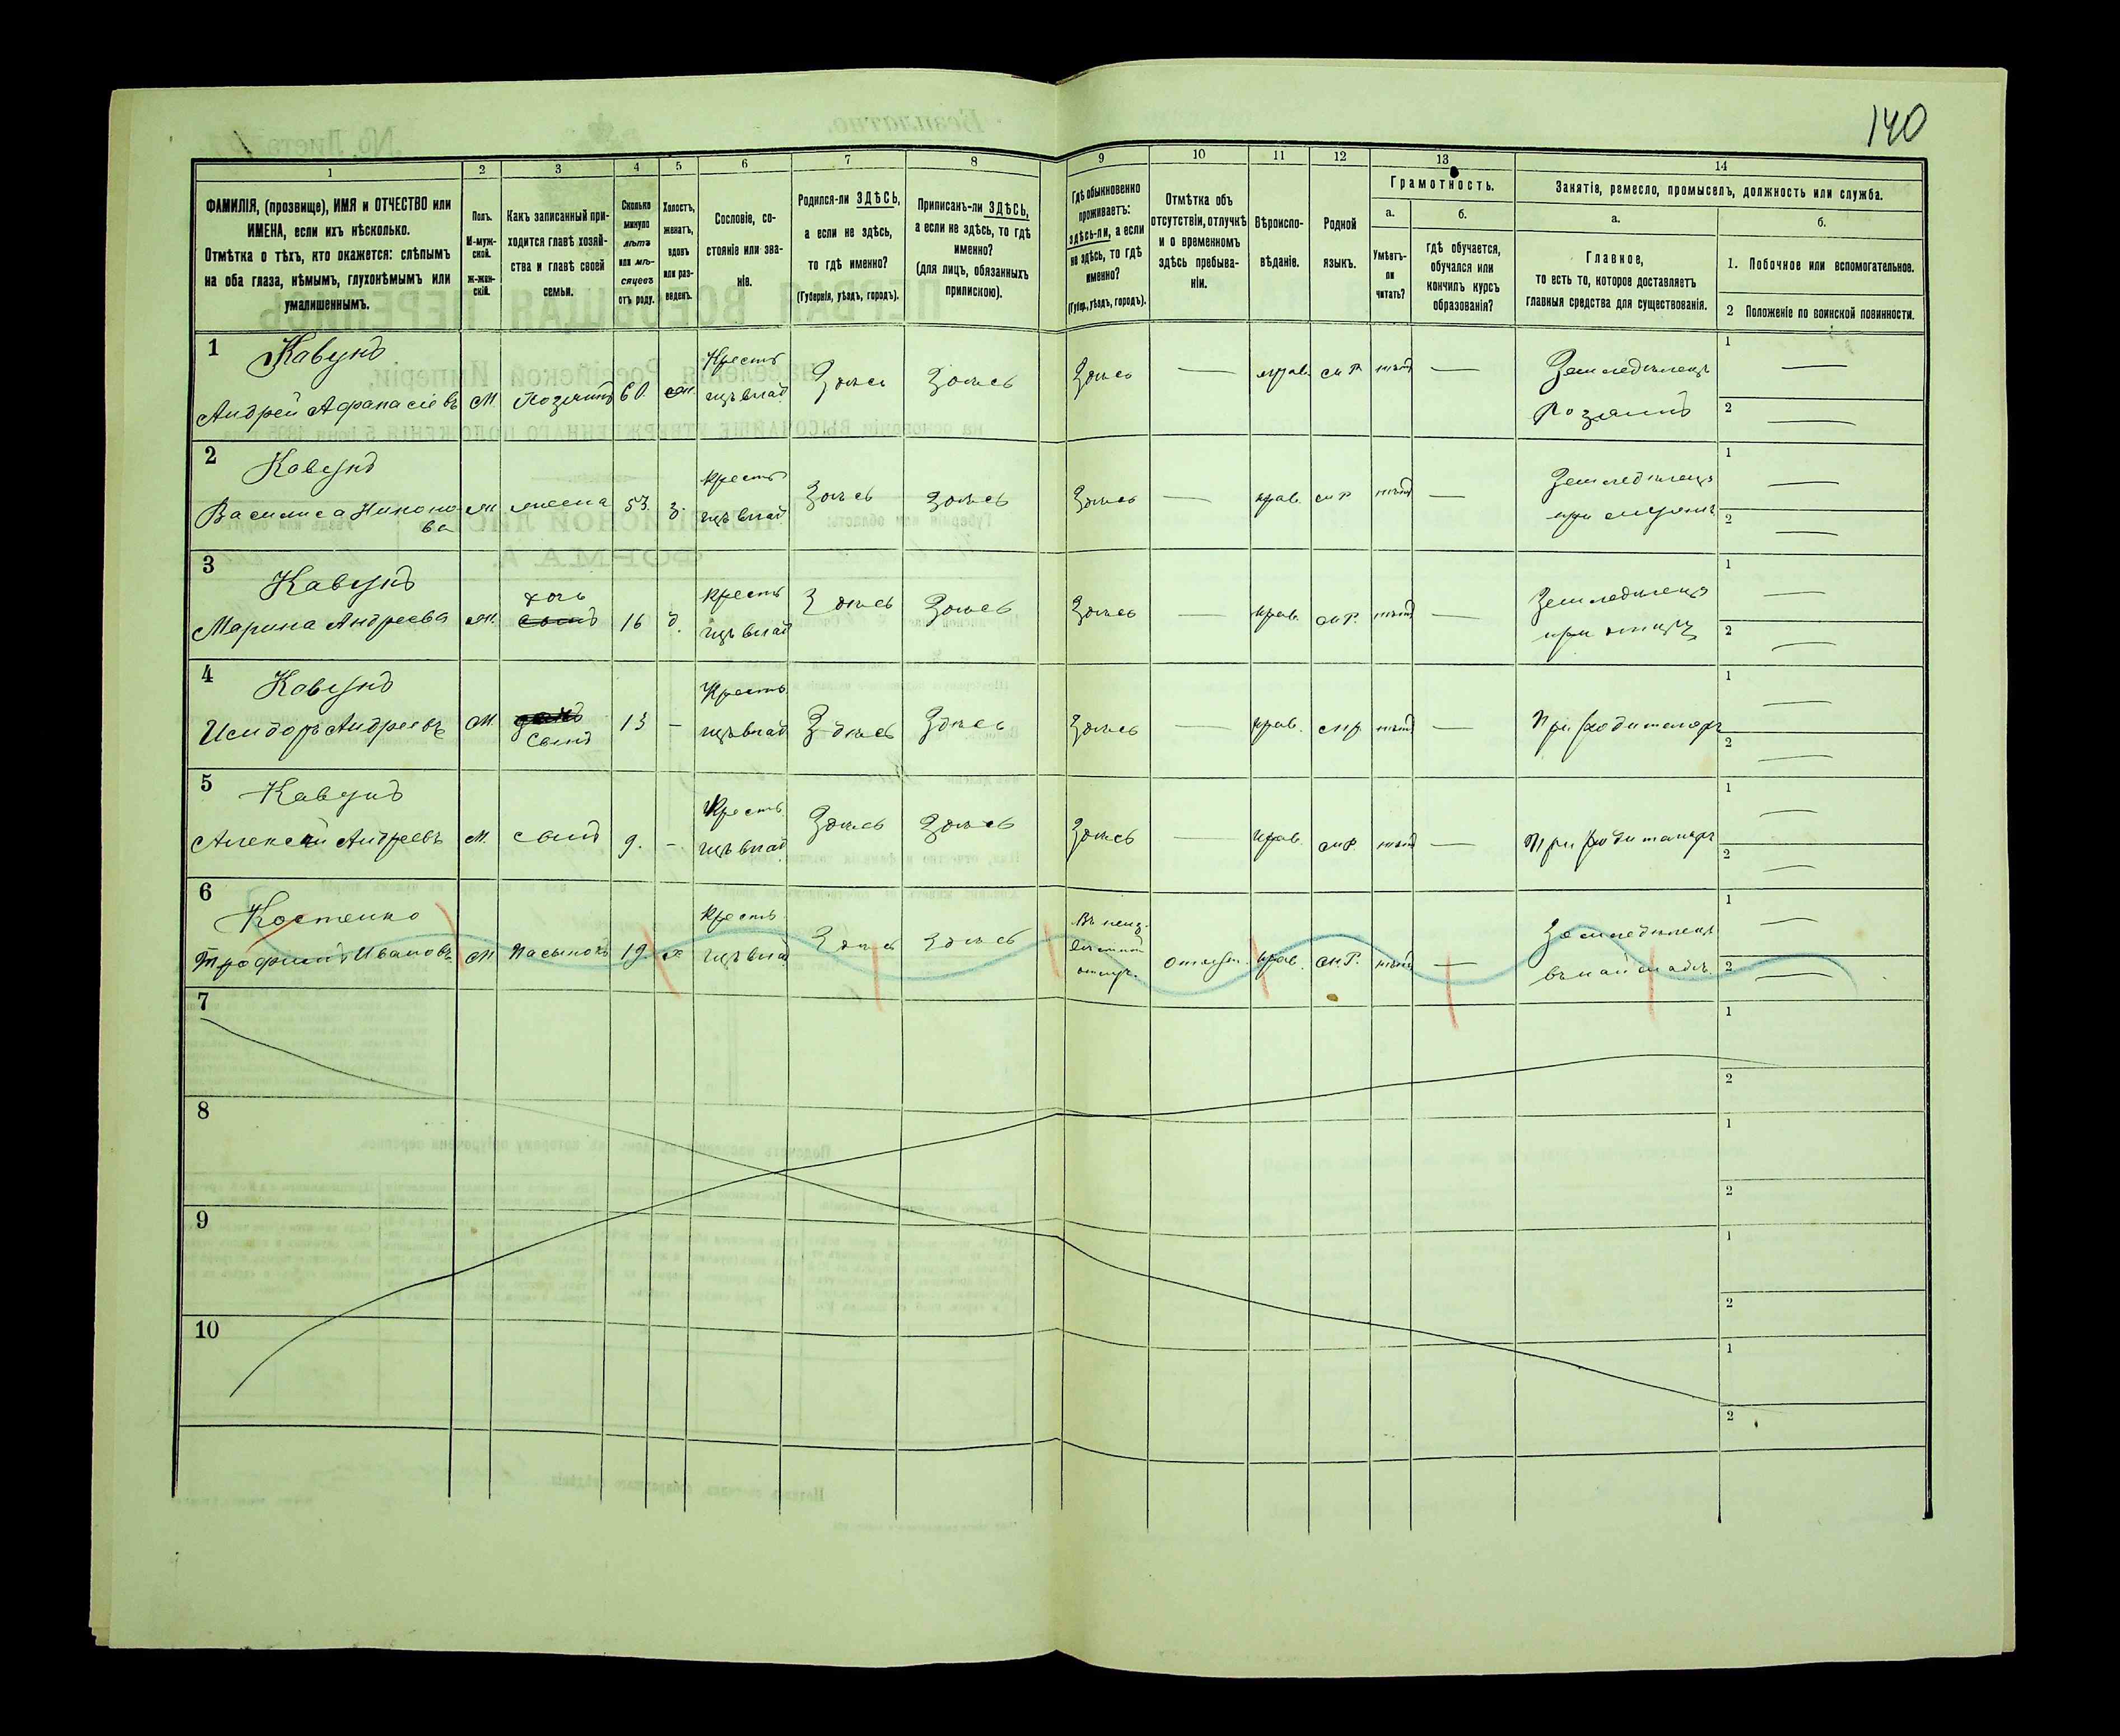 140
1 2 3 4 5 6 7 8 9 10 11 12 13 14
ФАМИЛІЯ, (прозвище), ИМЯ и ОТЧЕСТВО или
ИМЕНА, если ихъ нѣсколько.
Отмѣтка о тѣхъ, кто окажется: слѣпымъ
на оба глаза, нѣмымъ, глухонѣмымъ или
умалишеннымъ.
Полъ.
М-муж-
ской.
Ж-жен-
скій.
Какъ записанный при-
ходится главѣ хозяй-
ства и главѣ своей
семьи.
Сколько
минуло
лѣтъ
или мѣ-
сяцевъ
отъ роду.
Холостъ,
женатъ,
вдовъ
или раз-
веденъ.
Сословіе, со-
стояніе или зва-
ніе.
Родился-ли ЗДѢСЬ,
а если не здѣсь,
то гдѣ именно?
(Губернія, уѣздъ, городъ).
Приписанъ-ли ЗДѢСЬ,
а если не здѣсь, то гдѣ
именно?
(для лицъ, обязанныхъ
припискою).
Гдѣ обыкновенно
проживаетъ:
здѣсь-ли, а если
не здѣсь, то гдѣ
именно?
(Губер., уѣздъ, городъ).
Отмѣтка объ
отсутствіи, отлучкѣ
и о временномъ
здѣсь пребыва-
ніи.
Вѣроиспо-
вѣданіе.
Родной
языкъ.
Грамотность.
а.
Умѣетъ-
ли
читать?
б.
гдѣ обучается,
обучался или
кончилъ курсъ
образованія?
Занятіе, ремесло, промыселъ, должность или служба.
а.
Главное,
то есть то, которое доставляетъ
главныя средства для существованія.
б.
1. Побочное или вспомогательное.
2 Положеніе по воинской повинности.
1 Кавунъ
Андрей Афанасіевъ М Хозяинъ 60. ж. Крестъ
гцъ влад Здѣсь Здѣсь Здѣсь — прав. м.р. нѣтъ — Земледѣлецъ
Хозяинъ
1 —
2 —
2 Кавунъ
Василиса Никоно-
ва Ж. жена 53. з. Крестъ
гцъ влад Здѣсь Здѣсь Здѣсь — прав. м р нѣтъ — Земледѣлецъ
при мужѣ
1 —
2 —
3 Кавунъ
Марина Андреева Ж. дочь
сынъ 16 д. Крестъ
гцъ влад Здѣсь Здѣсь Здѣсь — прав. м.р. нѣтъ — Земледѣлецъ
при отцѣ
1 —
2 —
4 Кавунъ
Исидоръ Андреевъ М.
Сынъ 13 — Крестъ
гцъ влад Здѣсь Здѣсь Здѣсь — прав. м.р. нѣтъ — При родителяхъ
1 —
2 —
5 Кавунъ
Алексѣй Андреевъ М. сынъ 9. — Крестъ
гцъ влад Здѣсь Здѣсь Здѣсь — прав. м.р. нѣтъ — При родителяхъ
1 —
2 —
6 Костенко
Трофимъ Ивановъ М Пасынокъ 19. х Крестъ
гцъ влад Здѣсь Здѣсь Въ неиз-
вѣстной
отлуч. отлуч. прав. м.р. нѣтъ — Земледѣлецъ
1 —
2 —
7
1
2
8
1
2
9
1
2
10
1
2